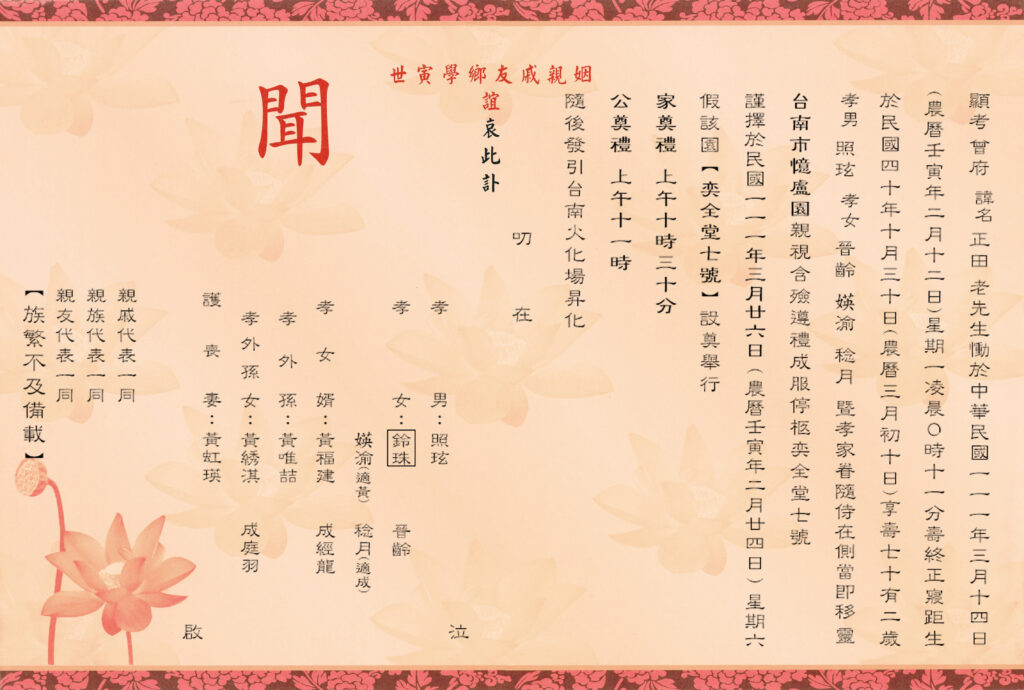 顯考 曾府 諱名 正田 老先生慟於中華民國一一一年三月十四日
(農曆壬寅年二月十二日)星期一凌晨０時十一分壽終正寢距生
於民國四十年十月三十日(農曆三月初十日)享壽七十有二歲
孝男 照玹 孝女 晉齡 媖渝 稔月 暨孝家眷隨侍在側當即移靈
台南市憶盧園親視含殮遵禮成服停柩奕全堂七號
謹擇於民國一一一年三月廿六日(農曆壬寅年二月廿四日)星期六
假該園【奕全堂七號】設奠舉行
家奠禮 上午十時三十分
公奠禮 上午十一時
隨後發引台南火化場昇化
叨 在
姻親戚友鄉學寅世
誼哀此訃
聞
孝 男：照玹 泣
孝 女：鈴珠 晉齡
媖渝(適黃) 稔月(適成)
孝 女 婿：黃福建 成經龍
孝 外 孫：黃唯喆
孝 外 孫 女：黃綉淇 成庭羽
護 喪 妻：黃虹瑛 啟
親戚代表一同
親族代表一同
親友代表一同
【族繁不及備載】